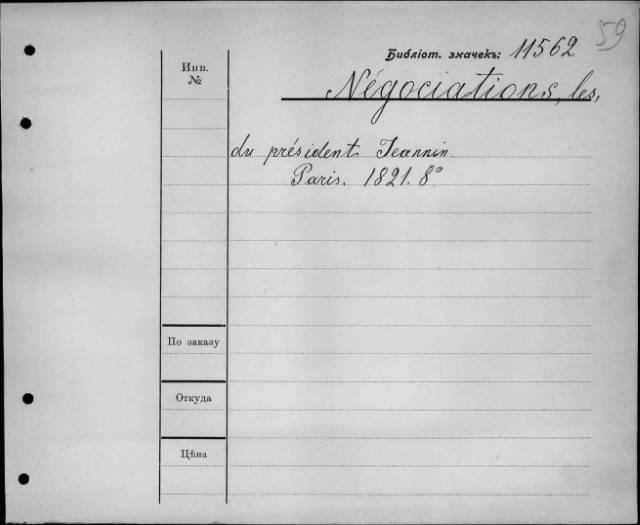 59
Библіот. значекъ: 11562
Инв.
№
Négociations, les,
du président Jeannin.
Paris. 1821. 8°
По заказу
Откуда
Цѣна